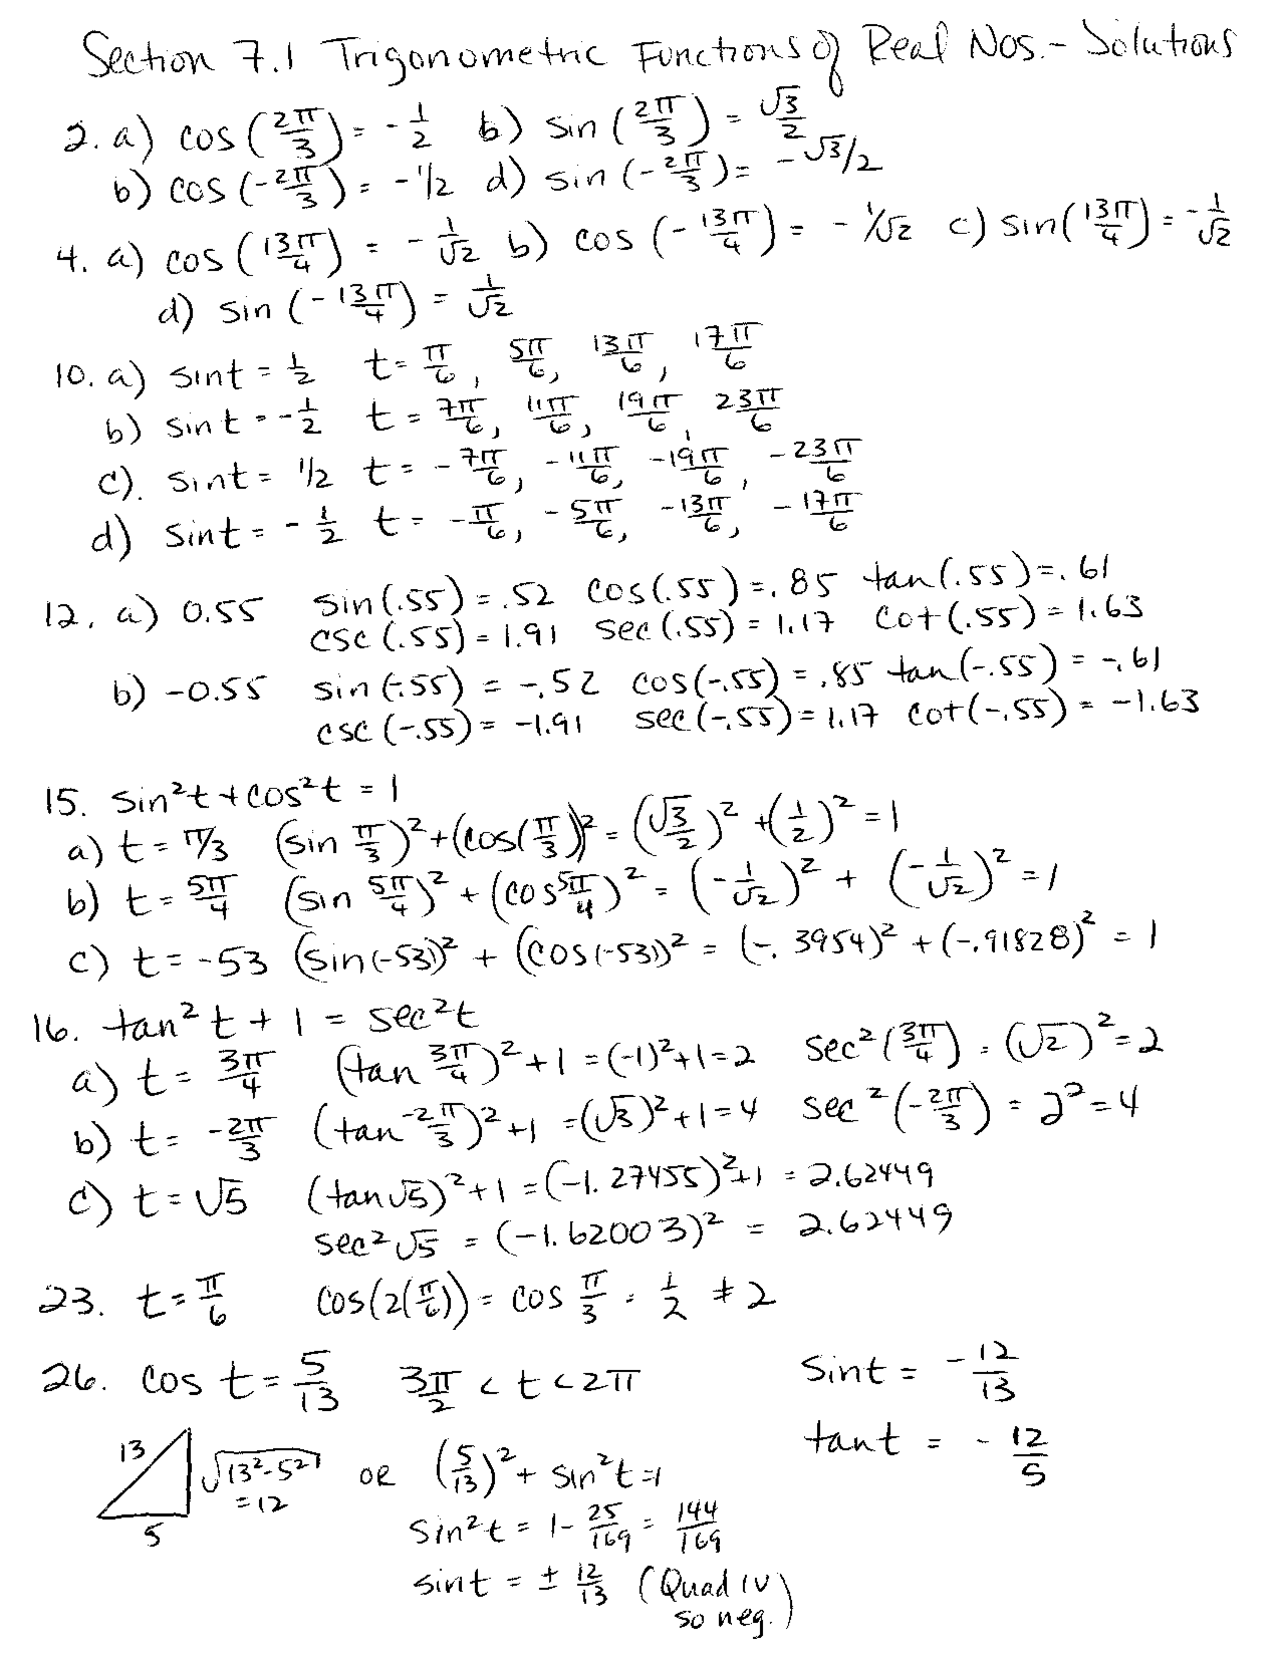 Section 7.1 Trigonometric Functions of Real Nos. - Solutions
2. a) cos(2π/3) = -1/2 b) sin(2π/3) = √3/2
b) cos(-2π/3) = -1/2 d) sin(-2π/3) = -√3/2
4. a) cos(13π/4) = -1/√2 b) cos(-13π/4) = -1/√2 c) sin(13π/4) = -1/√2
d) sin(-13π/4) = 1/√2
10. a) sint = 1/2 t = π/6, 5π/6, 13π/6, 17π/6
b) sint = -1/2 t = 7π/6, 11π/6, 19π/6, 23π/6
c). sint = 1/2 t = -7π/6, -11π/6, -19π/6, -23π/6
d) sint = -1/2 t = -π/6, -5π/6, -13π/6, -17π/6
12. a) 0.55 sin(.55) = .52 cos(.55) = .85 tan(.55) = .61
csc(.55) = 1.91 sec(.55) = 1.17 cot(.55) = 1.63
b) -0.55 sin(-.55) = -.52 cos(-.55) = .85 tan(-.55) = -.61
csc(-.55) = -1.91 sec(-.55) = 1.17 cot(-.55) = -1.63
15. sin²t + cos²t = 1
a) t = π/3 (sin π/3)² + (cos(π/3))² = (√3/2)² + (1/2)² = 1
b) t = 5π/4 (sin 5π/4)² + (cos 5π/4)² = (-1/√2)² + (-1/√2)² = 1
c) t = -53 (sin(-53))² + (cos(-53))² = (-.3954)² + (-.91828)² = 1
16. tan²t + 1 = sec²t
a) t = 3π/4 (tan 3π/4)² + 1 = (-1)² + 1 = 2 sec²(3π/4) = (√2)² = 2
b) t = -2π/3 (tan -2π/3)² + 1 = (√3)² + 1 = 4 sec²(-2π/3) = 2² = 4
c) t = √5 (tan√5)² + 1 = (-1.27455)² + 1 = 2.62449
sec²√5 = (-1.62003)² = 2.62449
23. t = π/6 cos(2(π/6)) = cos π/3 = 1/2 ≠ 2
26. cos t = 5/13 3π/2 < t < 2π sint = -12/13
tant = -12/5
13 √13²-5² or (5/13)² + sin²t = 1
= 12
5
sin²t = 1 - 25/169 = 144/169
sint = ± 12/13 (Quad IV
so neg.)